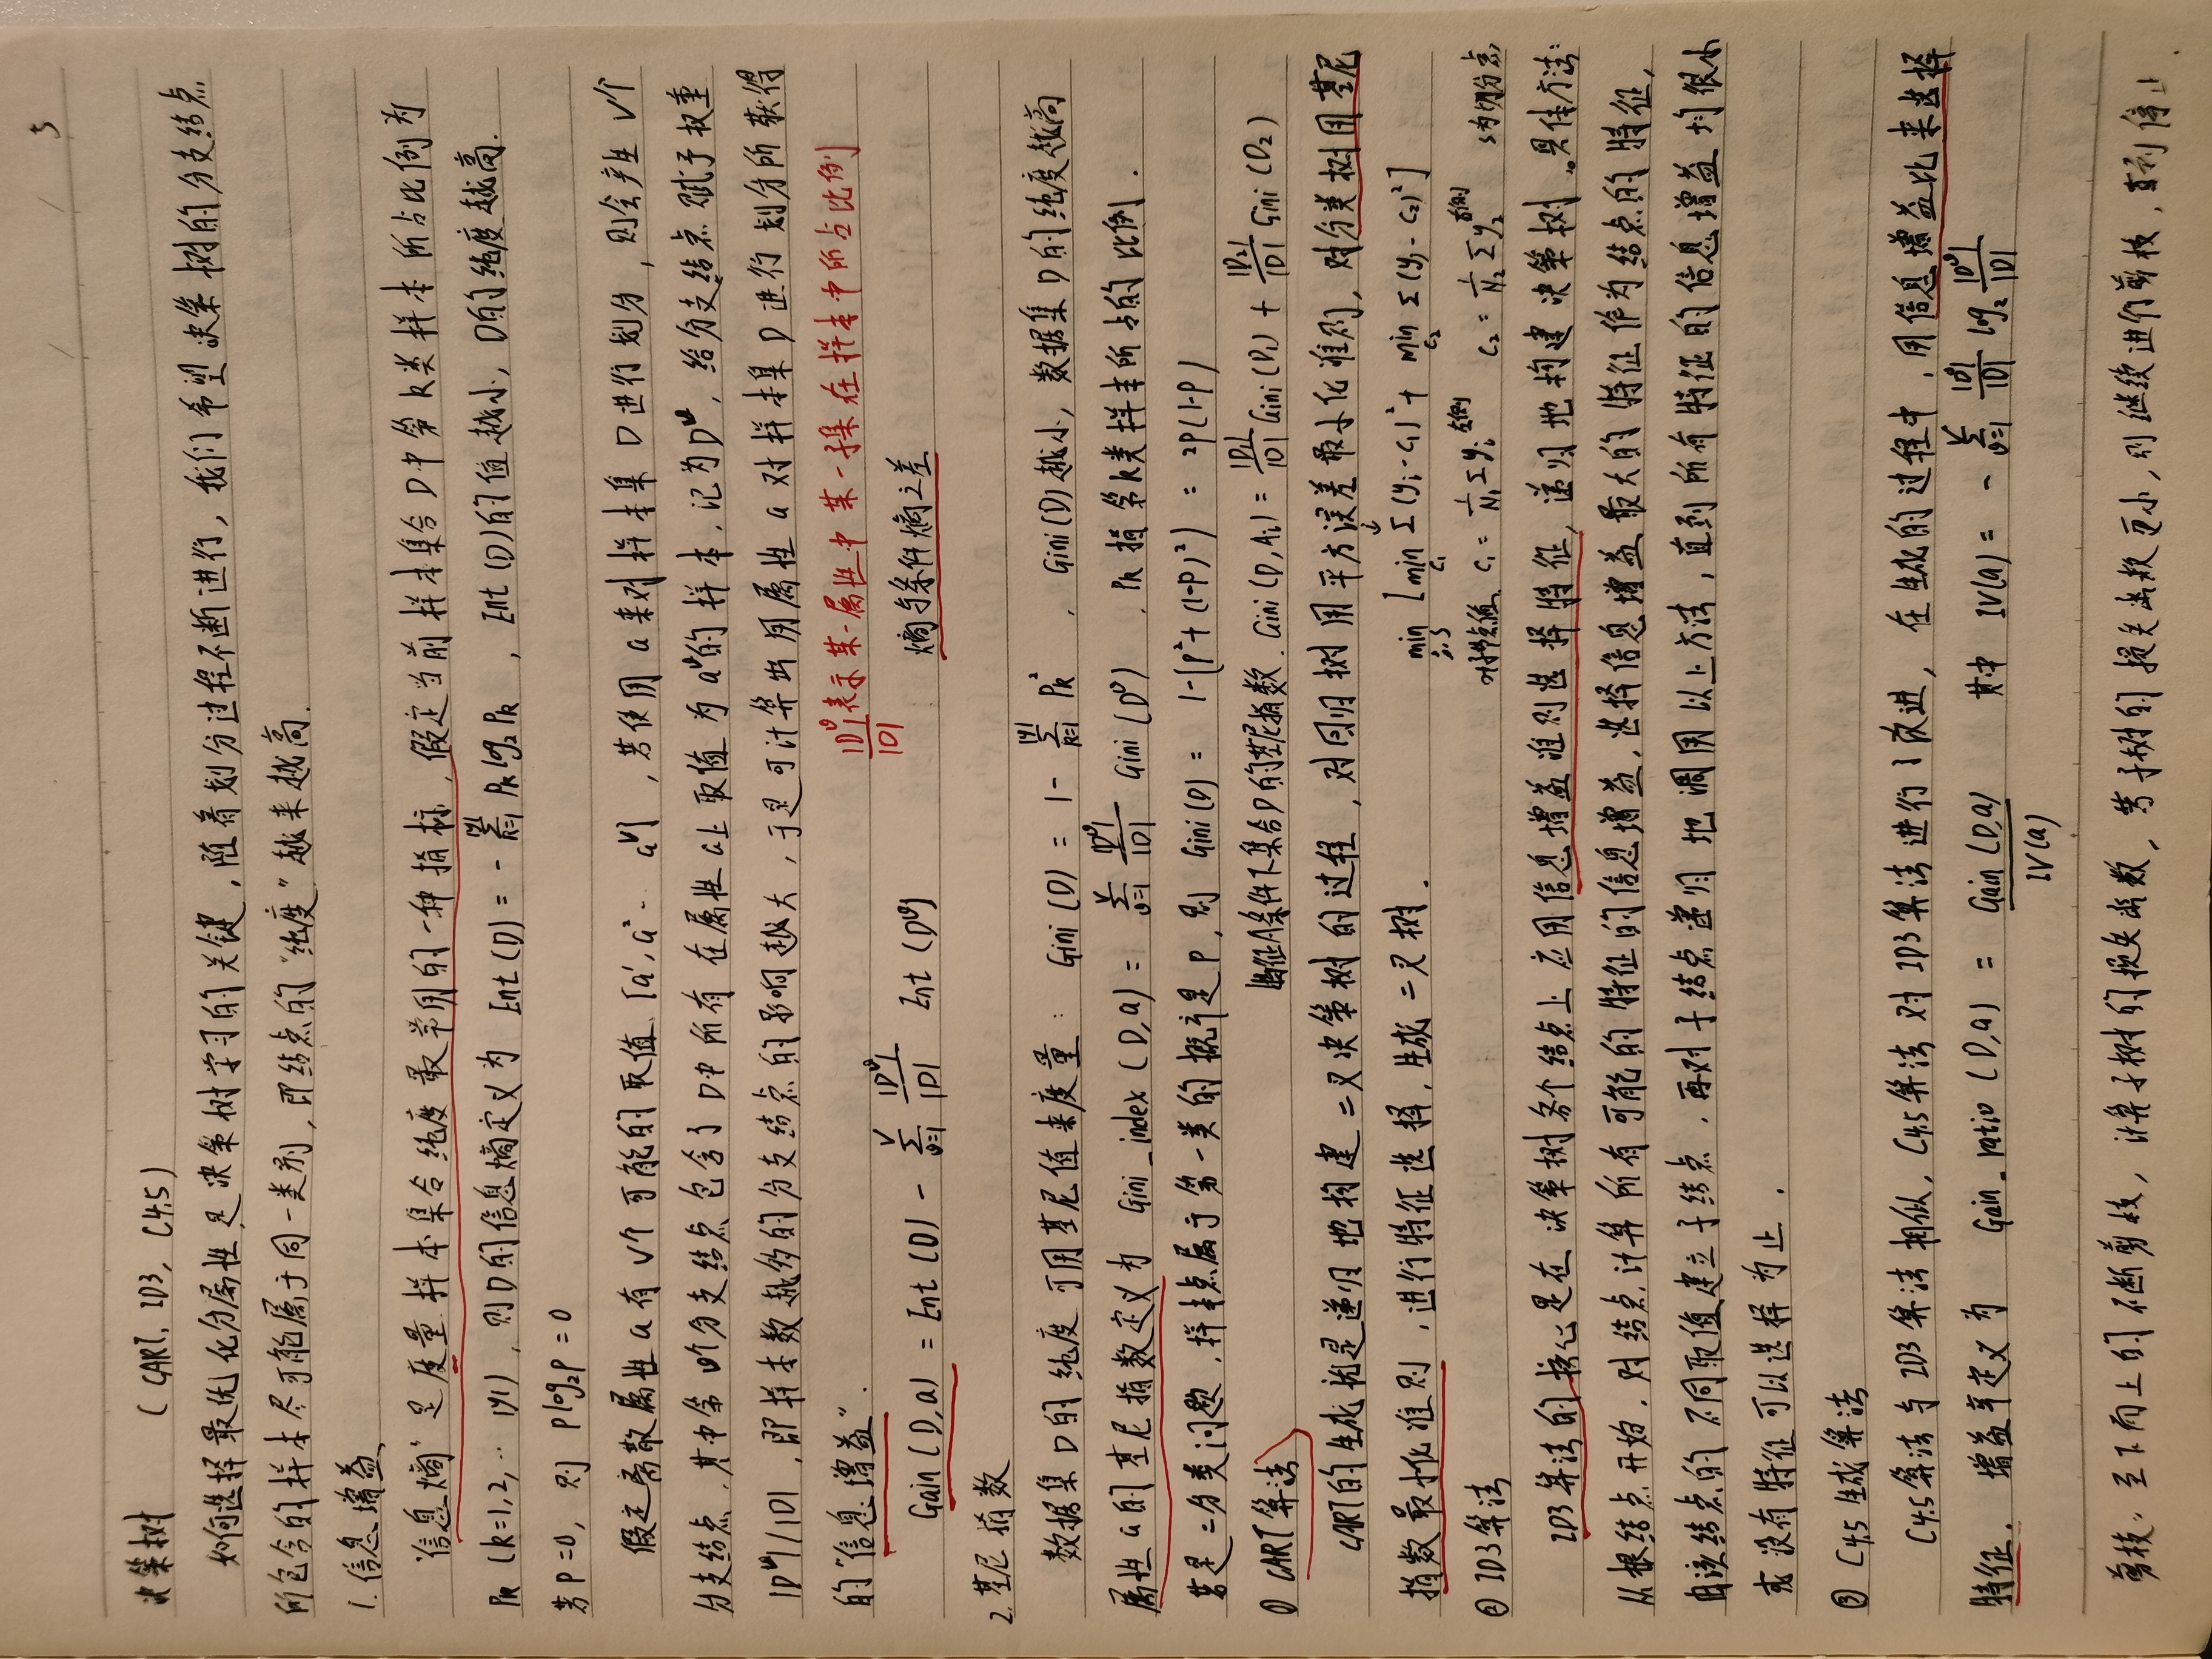 决策树 ( CART, ID3, C4.5)
如何选择最优化分属性是决策树学习的关键,随着划分过程不断进行,我们希望决策树的分支结点
所包含的样本尽可能属于同一类别,即结点的“纯度”越来越高.
1. 信息增益
“信息熵”是度量样本集合纯度最常用的一种指标,假定当前样本集合D中第k类样本所占比例为
Pk (k=1,2,...|y|),则D的信息熵定义为 Ent(D) = - Σ_{k=1}^{|y|} Pk log₂ Pk , Ent(D)的值越小,D的纯度越高.
若P=0,则 Plog₂P = 0
假定离散属性a有V个可能的取值{a¹,a²...a^V},若使用a来对样本集D进行划分,则会产生V个
分支结点,其中第v个分支结点包含了D中所有在属性a上取值为a^v的样本,记为D^v,给分支结点赋予权重
|D^v|/|D|,即样本数越多的分支结点的影响越大,于是可计算出用属性a对样本集D进行划分所获得
的“信息增益”. |D^v|/|D| 表示某一属性中某一子集在样本中所占比例
Gain(D,a) = Ent(D) - Σ_{v=1}^{V} |D^v|/|D| Ent(D^v) 熵与条件熵之差
2. 基尼指数
数据集D的纯度可用基尼值来度量: Gini(D) = 1 - Σ_{k=1}^{|y|} Pk² , Gini(D)越小,数据集D的纯度越高
属性a的基尼指数定义为 Gini_index(D,a) = Σ_{v=1}^{V} |D^v|/|D| Gini(D^v) , Pk指第k类样本所占的比例.
若是二分类问题,样本点属于第一类的概率是P,则 Gini(D) = 1-(P²+(1-P)²) = 2P(1-P)
① CART算法 特征A条件下集合D的基尼指数. Gini(D,Ai) = |D₁|/|D| Gini(D₁) + |D₂|/|D| Gini(D₂)
CART的生成就是递归地构建二叉决策树的过程,对回归树用平方误差最小化准则,对分类树用基尼
指数最小化准则,进行特征选择,生成二叉树. min_{j,s} [min_{c₁} Σ(yᵢ-c₁)² + min_{c₂} Σ(yᵢ-c₂)²]
c₁ = 1/N₁ Σyᵢ 左侧 c₂ = 1/N₂ Σyᵢ 右侧 s为切分点
② ID3算法
ID3算法的核心是在决策树各个结点上应用信息增益准则选择特征,递归地构建决策树。具体方法:
从根结点开始,对结点计算所有可能的特征的信息增益,选择信息增益最大的特征作为结点的特征,
由该结点的不同取值建立子结点,再对子结点递归地调用以上方法,直到所有特征的信息增益均很小
或没有特征可以选择为止.
③ C4.5生成算法
C4.5算法与ID3算法相似,C4.5算法对ID3算法进行了改进,在生成的过程中,用信息增益比来选择
特征. 增益率定义为 Gain_ratio(D,a) = Gain(D,a)/IV(a) 其中 IV(a) = - Σ_{v=1}^{V} |D^v|/|D| log₂ |D^v|/|D|
剪枝:至下而上的不断剪枝,计算子树的损失函数,若子树的损失函数更小,则继续进行剪枝,直到停止.